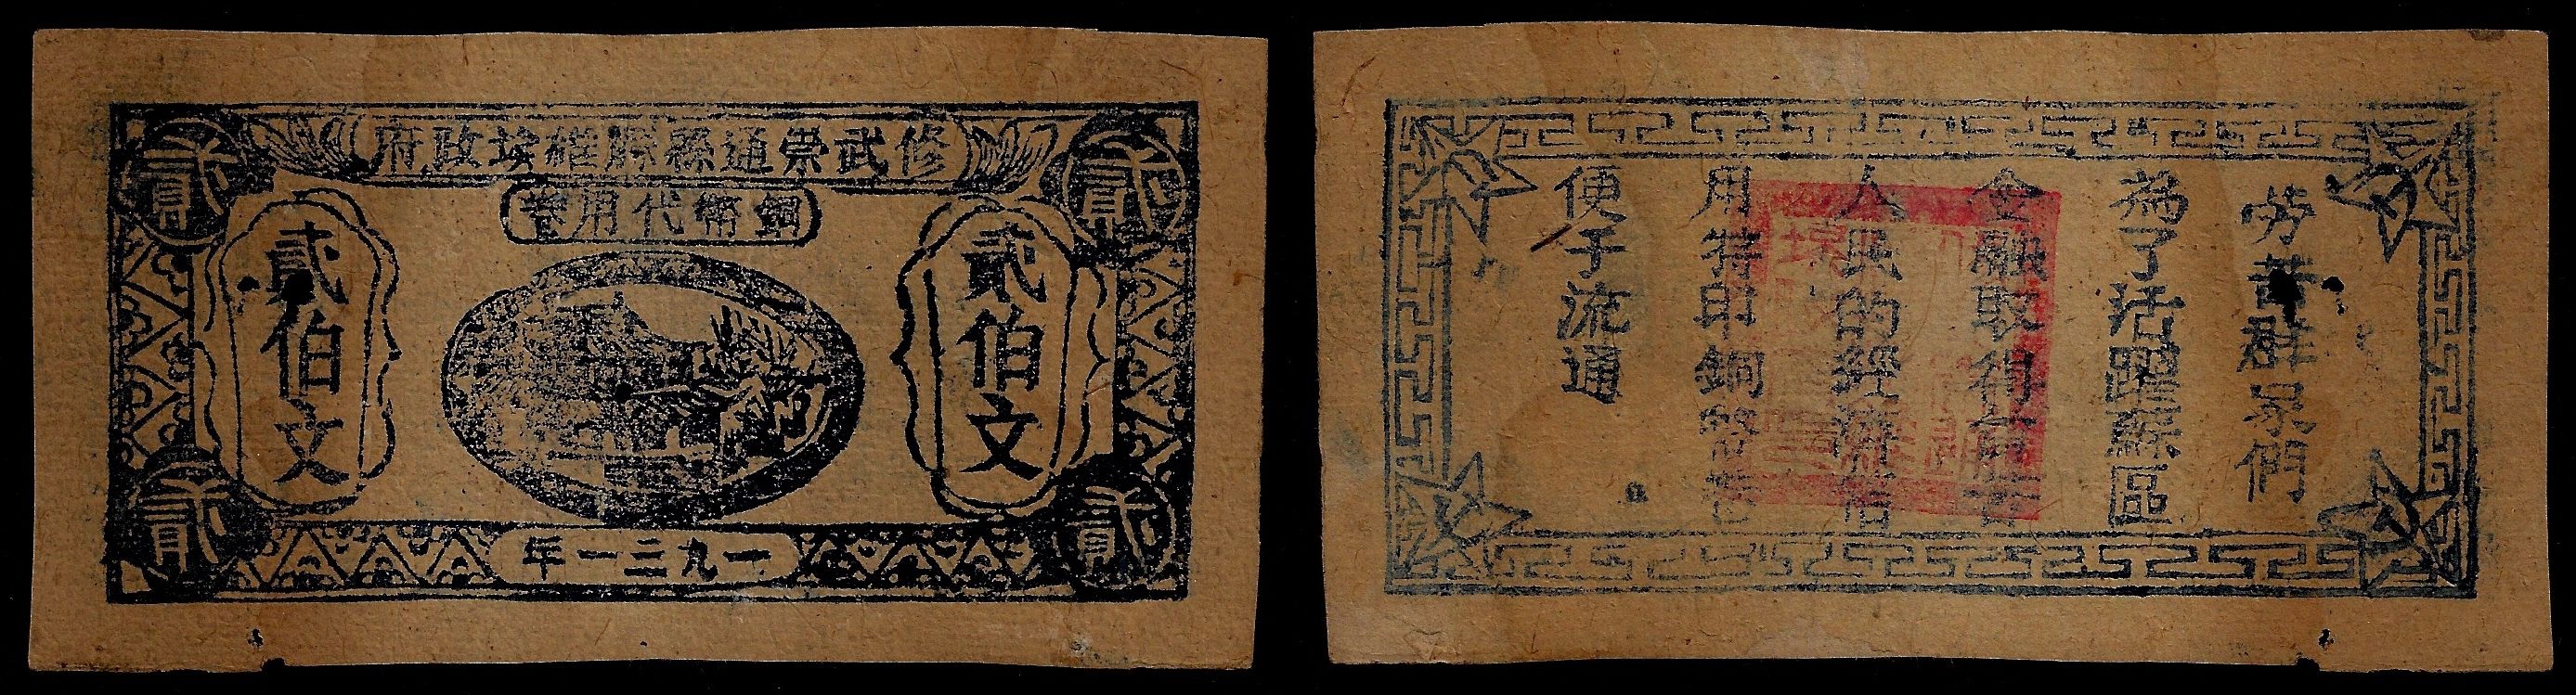 修武崇通縣蘇維埃政府
銅幣代用卷
貳
貳
貳伯文
貳伯文
一九三一年
貳
貳
勞苦群眾們
為了活躍蘇區
金融取得
人民的經濟信
用特印銅幣卷
便于流通